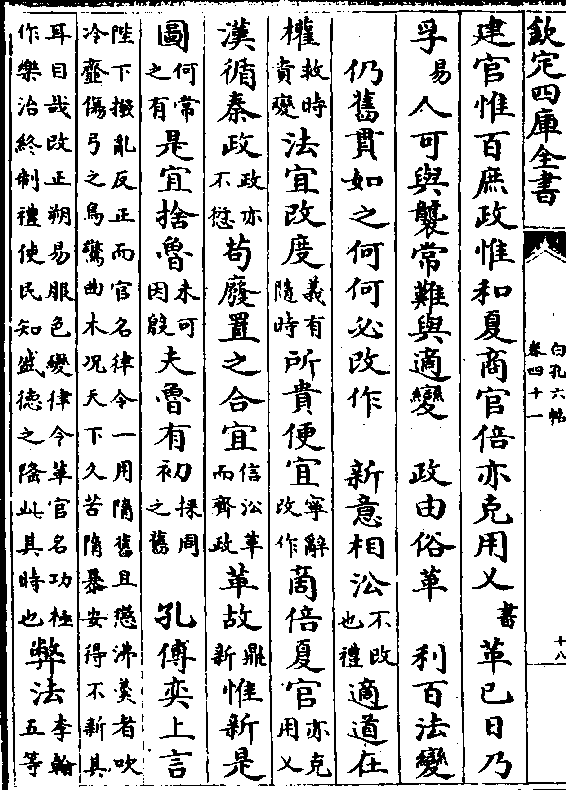 欽定四庫全書
白孔六帖
卷四十一
十八
建官惟百庶政惟和夏商官倍亦克用乂書　革已日乃
孚易　人可與襲常難與適變　政由俗革　利百法變
仍舊貫如之何何必改作　新意相㳂不改也禮　適道在
權救時貴變　法宜改度義有隨時　所貴便宜寧辭改作　商倍夏官亦克用乂
漢循秦政政亦不愆　苟廢置之合宜信㳂革而齊政　革故鼎新　惟新是
圖何常之有　是宜捨魯未可因殷　夫魯有初採周之舊　孔傅奕上言
陛下撥亂反正而官名律令一用隋舊且懲沸羹者吹
冷齏傷弓之鳥驚曲木况天下久苦隋暴安得不新其
耳目哉改正朔易服色變律令革官名功極
作樂治終制禮使民知盛德之隆此其時也　弊法李翰五等